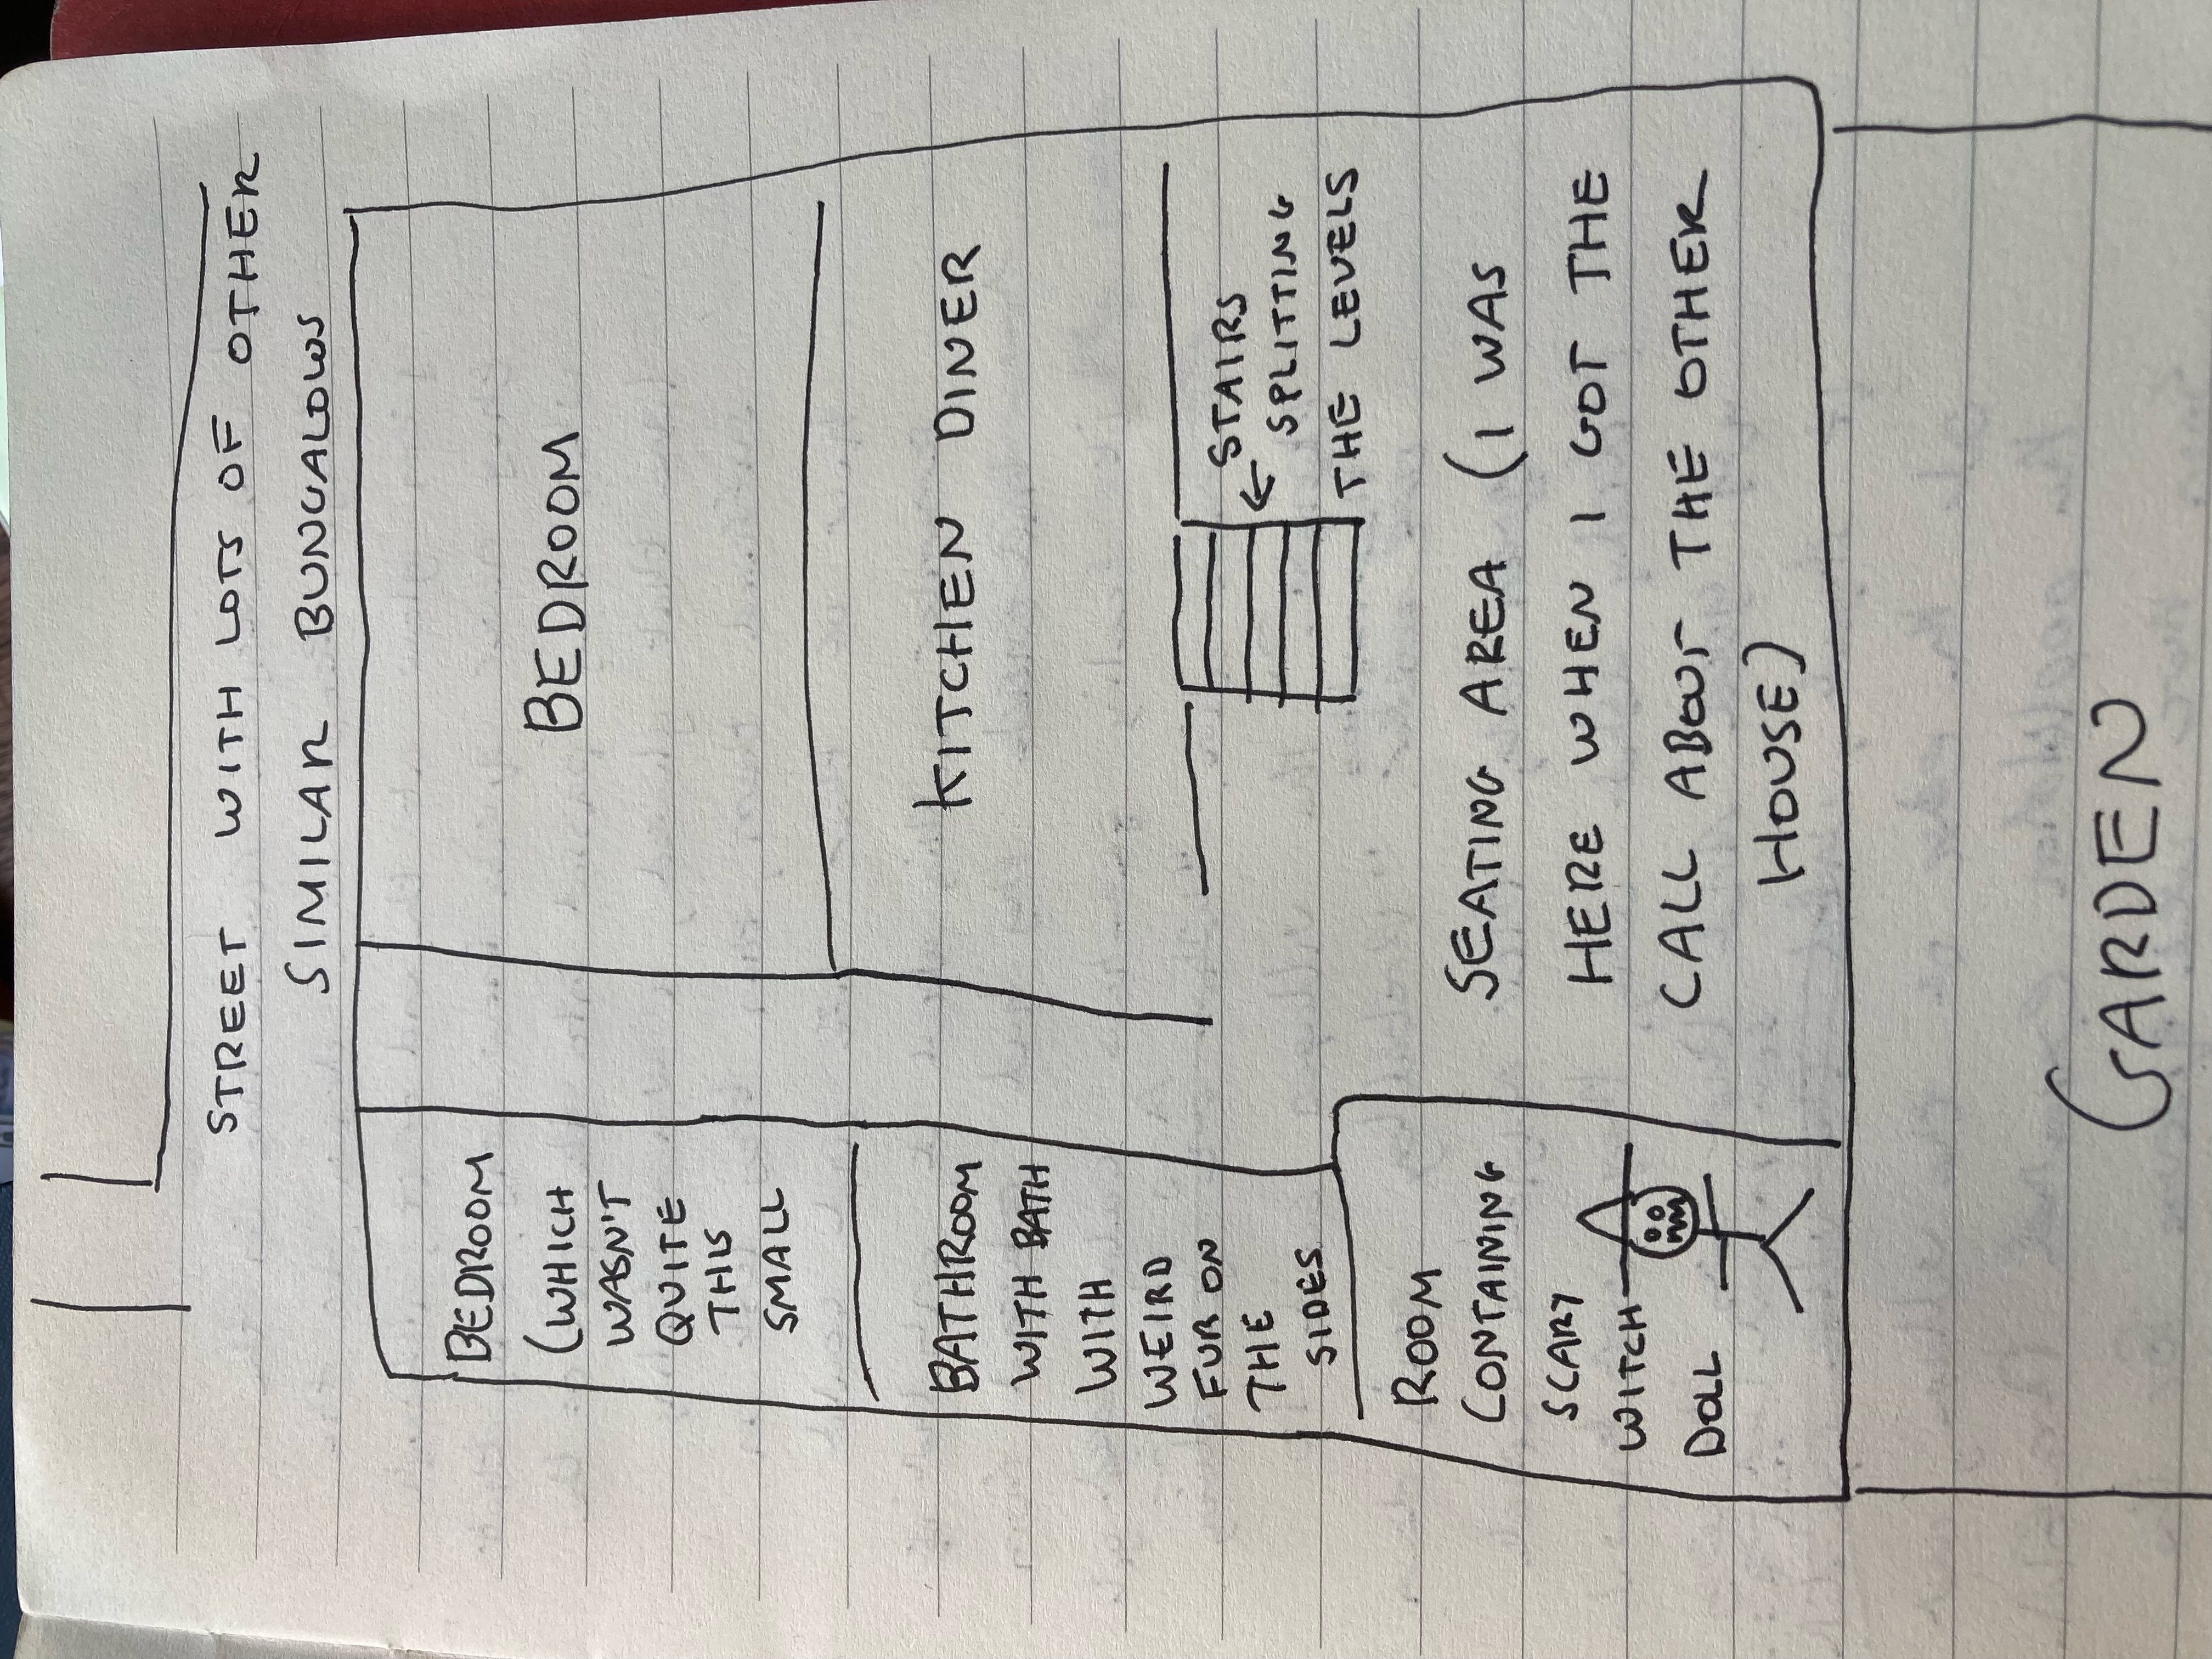 STREET WITH LOTS OF OTHER
SIMILAR BUNGALOWS
BEDROOM
(WHICH
WASN'T
QUITE
THIS
SMALL
BEDROOM
BATHROOM
WITH BATH
WITH
WEIRD
FUR ON
THE
SIDES
KITCHEN DINER
← STAIRS
SPLITTING
THE LEVELS
ROOM
CONTAINING
SCARY
WITCH
DOLL
SEATING AREA (I WAS
HERE WHEN I GOT THE
CALL ABOUT THE OTHER
HOUSE)
GARDEN